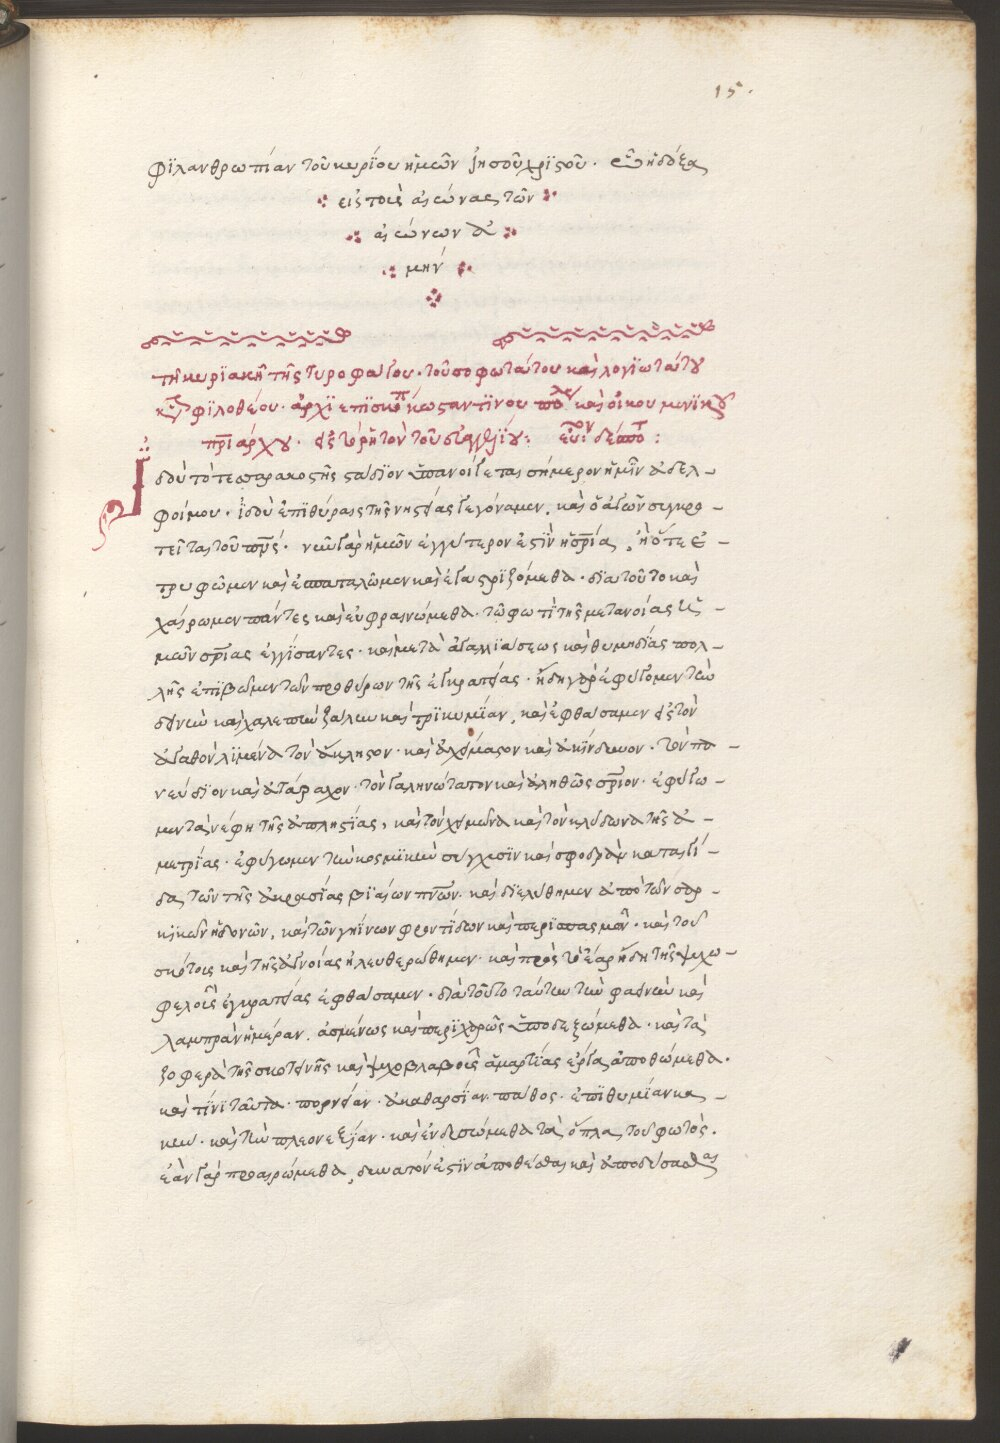 15.
φϊλανθρωπίαν τοῦ κυρίου ἡμῶν ἰησοῦ χριστοῦ. ᾧ ἡ δόξα
εἰς τοὺς αἰώνας τῶν
αἰώνων ἀ
μήν
τῇ κυριακῇ τῆς τυροφάγου. τοῦ σοφωτάτου καὶ λογϊωτάτου
φϊλοθέου. ἀρχϊεπϊσκόπ κωνσταντϊνουπόλ καὶ οἰκουμενϊκοῦ
πρϊάρχου. εἰς τὸ ῥητὸν τοῦ εὐαγγελίου: εὐ: δέσποτ:
Ἰδοὺ τότε παρακοῆς στάδϊον ὑπανοίγεται σήμερον ἡμῖν ἀδελ-
φοί μου. ἰδοὺ ἐπϊθύραις τῆς νηστείας γεγόναμεν. καὶ ὁ ἀγὼν συγκρο-
τεῖται τοῦ πνς. νῦν γὰρ ἡμῶν ἐγγύτερον ἐστὶν ἡ σρία, ἢ ὅτε ἐ-
τρυφῶμεν καὶ ἐσπαταλῶμεν καὶ ἐγαστριζόμεθα. δϊα τοῦτο καὶ
χαίρωμεν πάντες καὶ εὐφραινώμεθα. τῷ φωτὶ τῆς μετανοίας ἡ-
μῶν σρίας ἐγγίσαντες. καὶ μετὰ ἀγαλλϊάσεως καὶ θυμηδίας πολ-
λῆς ἐπϊβῶμεν τῶν προθύρων τῆς ἐγκρατείας. ἤδη γὰρ ἐφύγομεν τὴν
δεινὴν καὶ χαλεπὴν ζάλην καὶ τρϊκυμϊαν, καὶ ἐφθάσαμεν εἰς τὸν
ἀγαθὸν λϊμένα τὸν ἄκληστον. καὶ ἀχείμαστον καὶ ἀκίνδυνον. τὸν πα-
νεύδϊον καὶ ἀτάραχον. τὸν γαληνώτατον καὶ ἀληθῶς σριον. ἐφύγω-
μεν τὰ νέφη τῆς ἀπληστίας, καὶ τὸν χειμῶνα καὶ τὸν κλύδωνα τῆς ἀ-
μετρίας. ἐφύγωμεν τὴν κοσμϊκὴν σύγχισϊν καὶ σφοδρὰν καταιγί-
δα τῶν τῆς ἀκρασίας βϊαίων πνων. καὶ δϊελύθημεν ἀπὸ τῶν σαρ-
κϊκῶν ἡδονῶν, καὶ τῶν γηίνων φροντίδων καὶ περϊσπασμῶν. καὶ τοῦ
σκότους καὶ τῆς ἀγνοίας ἠλευθερώθημεν. καὶ πρὸς τὸ ἔαρ ἤδη τῆς ψυχω-
φελοῦς ἐγκρατείας ἐφθάσαμεν. διὰ τοῦτο ταύτην τὴν φαεινὴν καὶ
λαμπρὰν ἡμέραν. ἀσμένως καὶ περϊχαρῶς ὑποδεξώμεθα. καὶ τὰ
ζοφερὰ τῆς σκοτεινῆς καὶ ψυχοβλαβοῦς ἁμαρτίας ἔργα ἀποθώμεθα.
καὶ τίνϊ ταῦτα. πορνείαν. ἀκαθαρσίαν. πάθος. ἐπϊθυμϊαν κα-
κὴν. καὶ τὴν πλεονεξίαν. καὶ ἐνδυσώμεθα τὰ ὅπλα τοῦ φωτός.
ἐὰν γὰρ προαιρώμεθα, δυνατόν ἐστϊν ἀποθέσθαι καὶ ἀποδύσασθαι